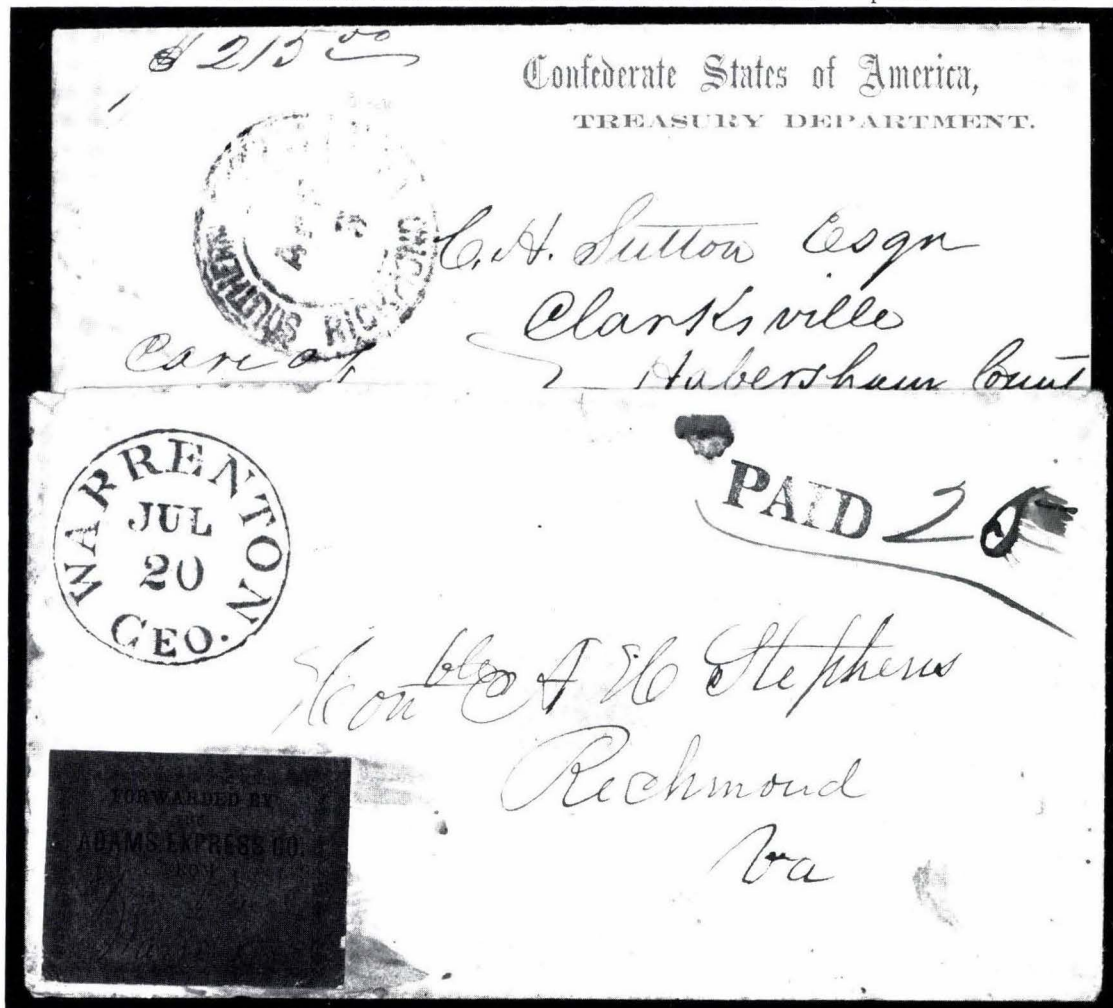 $ 215 00
Confederate States of America,
TREASURY DEPARTMENT.
SOUTHERN RICHMOND
C. H. Sutton Esqr
Clarksville
Care of
Habersham Count
WARRENTON
JUL
20
GEO.
PAID 25
Honble A H Stephens
Richmond
Va
FORWARDED BY
THE
ADAMS EXPRESS CO.
FROM